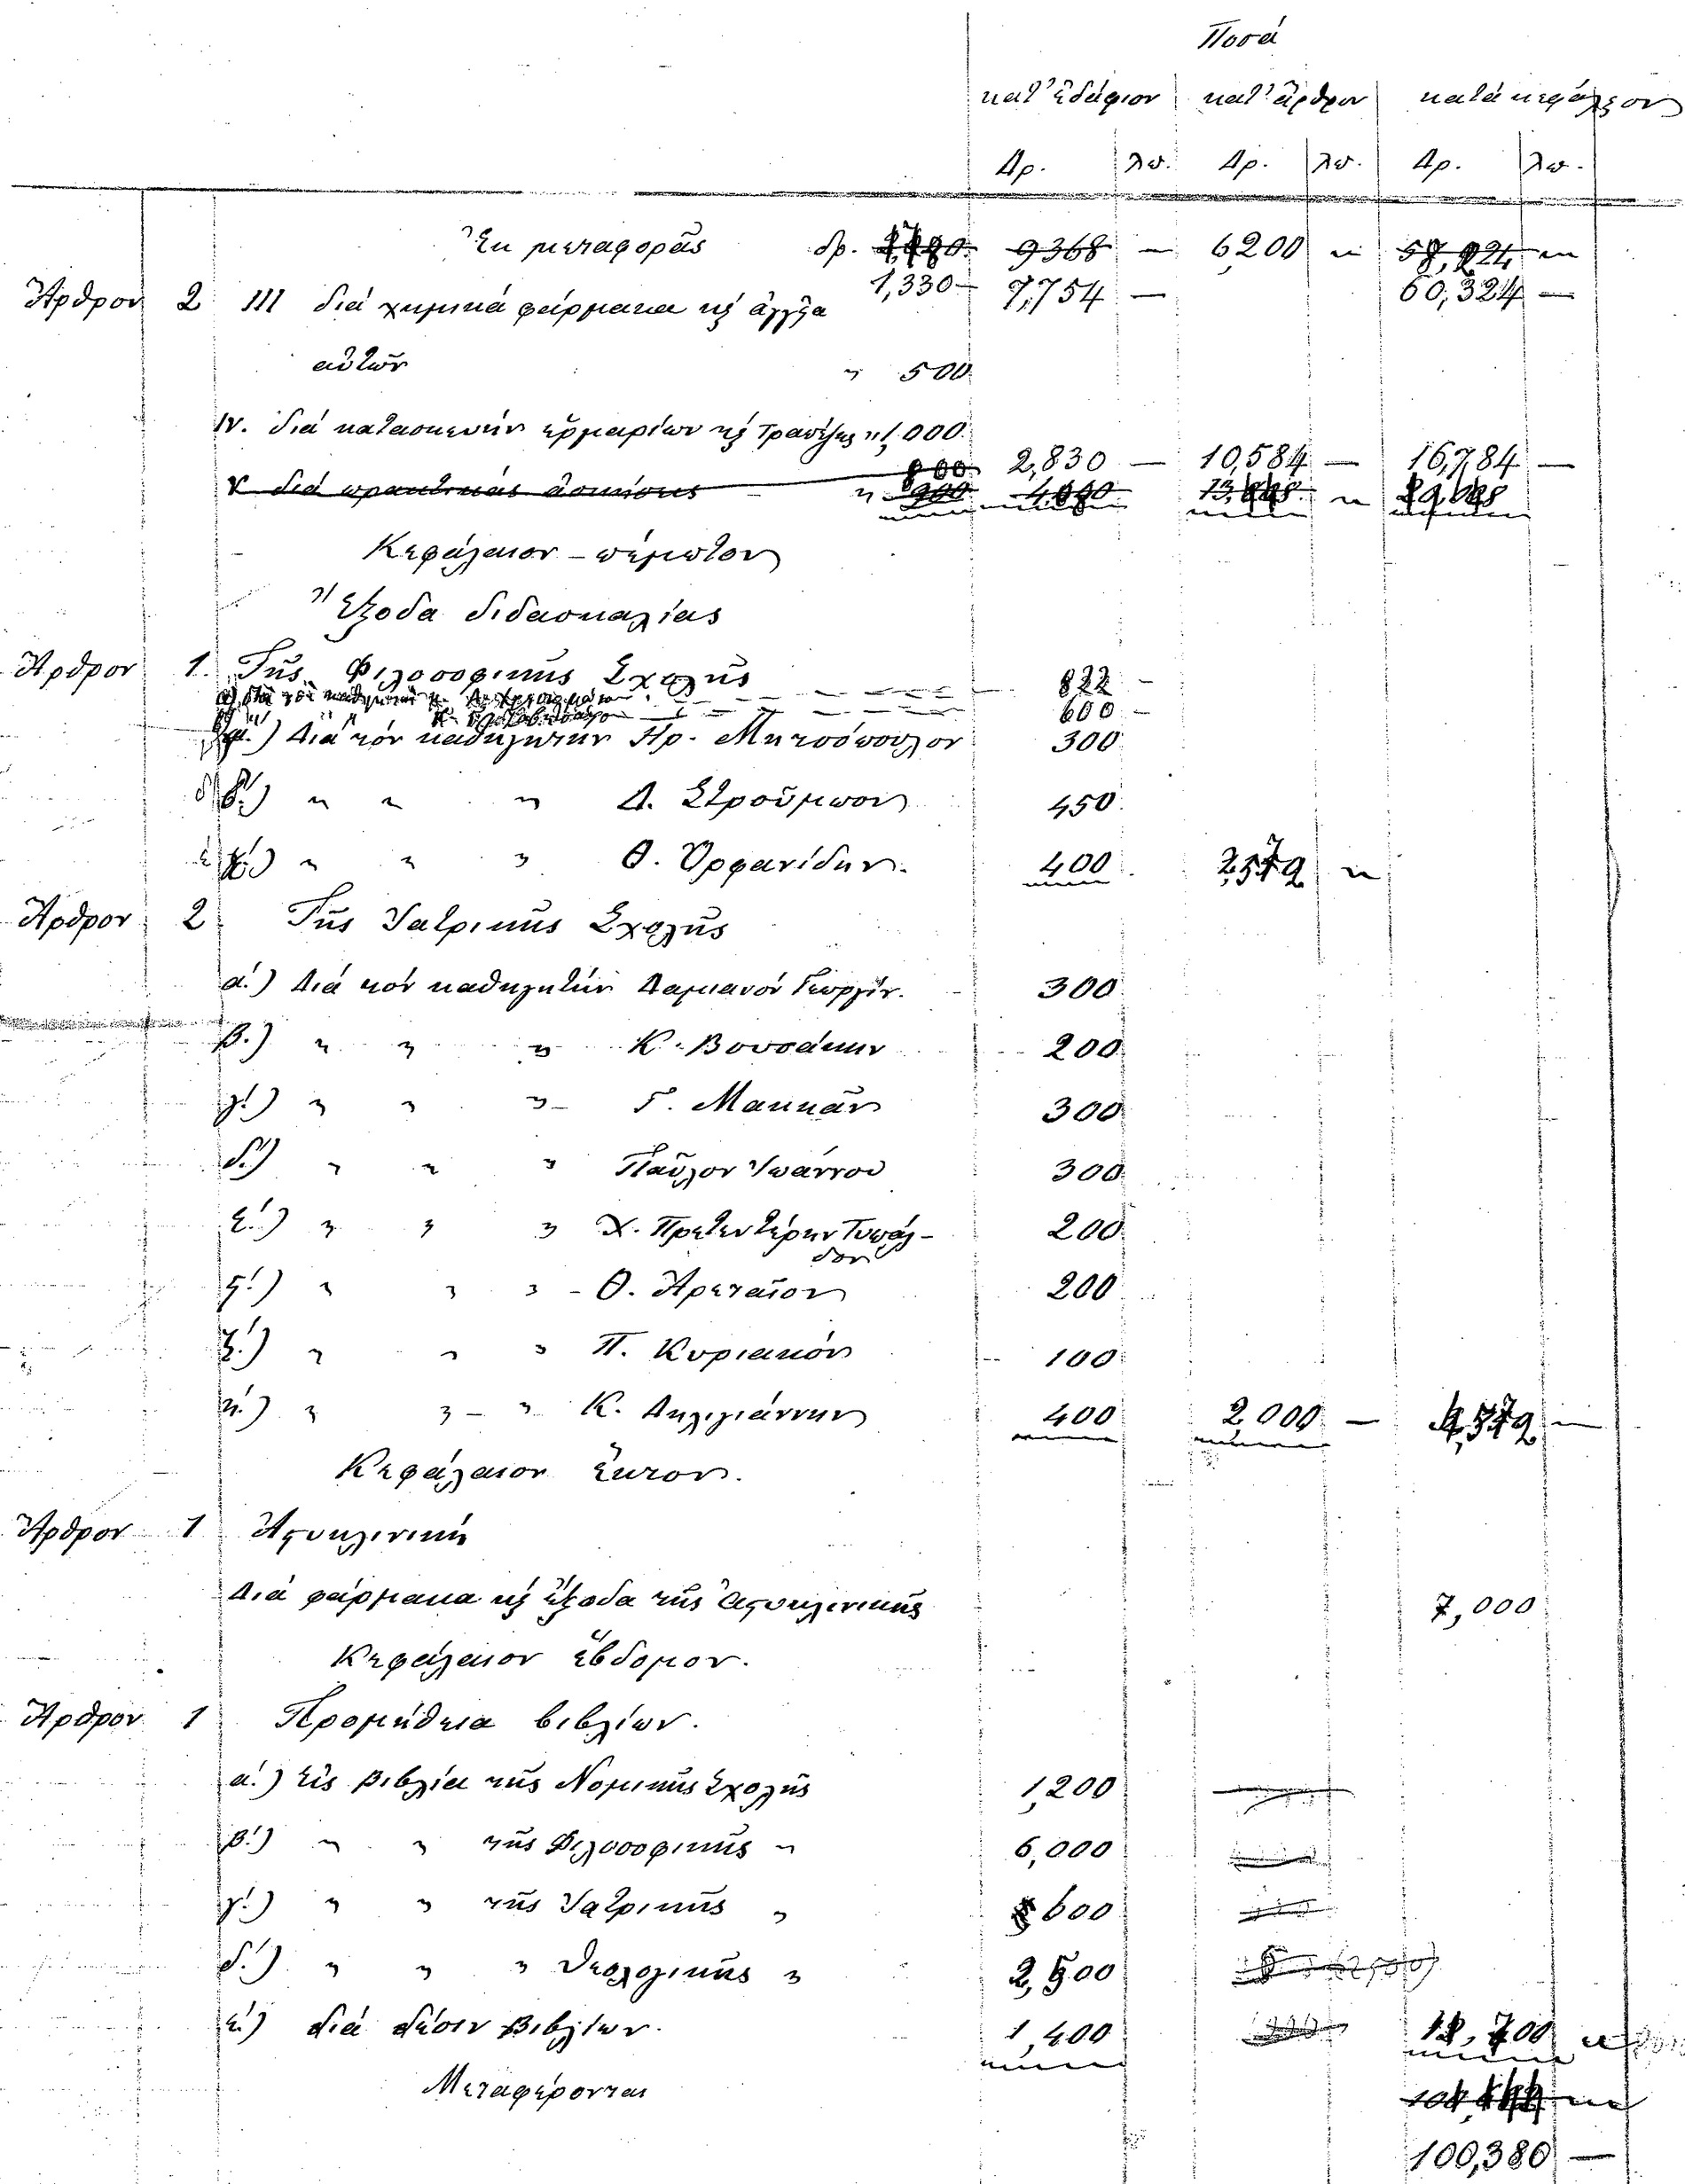 Ποσά
κατ' ἐδάφιον κατ' ἄρθρον κατά κεφάλαιον
Δρ. λπ. Δρ. λπ. Δρ. λπ.
Ἐκ μεταφορᾶς δρ. 9368 — 6,200 "
1,330 — 7,754 — 60,324 —
Ἄρθρον 2 III διά χημικά φάρμακα κ̀ ἀγγεῖα
αὐτῶν " 500
IV. διά κατασκευήν ἑρμαρίων κ̀ τραπέζης " 1,000
2,830 — 10,584 — 16,784 —
V διά πρακτικάς ἀσκήσεις "
Κεφάλαιον πέμπτον
Ἔξοδα διδασκαλίας
Ἄρθρον 1. Τῆς Φιλοσοφικῆς Σχολῆς
822 —
600 —
) Διά τόν καθηγητήν Ηρ. Μητσόπουλον 300
) " " " Δ. Στροῦμπον 450
) " " " Θ. Ὀρφανίδην. 400 2,572 "
Ἄρθρον 2 Τῆς Ἰατρικῆς Σχολῆς
ά.) Διά τόν καθηγητήν Δαμιανόν Γεωργίου. 300
β.) " " " Κ. Βουσάκην 200
γ.) " " " Γ. Μακκᾶν 300
δ.) " " " Παῦλον Ἰωάννου 300
έ.) " " " Χ. Πρετεντέρην Τυπάλ-
δον 200
ς.) " " " Θ. Ἀρεταῖον 200
ζ.) " " " Π. Κυριακόν 100
ή.) " " " Κ. Δηλιγιάννην 400 2,000 — 4,572 —
Κεφάλαιον ἕκτον.
Ἄρθρον 1 Ἀστυκλινική
Διά φάρμακα κ̀ ἔξοδα τῆς ἀστυκλινικῆς 7,000
Κεφάλαιον ἕβδομον.
Ἄρθρον 1 Προμήθεια βιβλίων.
ά.) Εἰς βιβλία τῆς Νομικῆς Σχολῆς 1,200
β.) " " τῆς Φιλοσοφικῆς " 6,000
γ.) " " τῆς Ἰατρικῆς " 600
δ.) " " " Θεολογικῆς " 2,500
έ) διά δέσιν βιβλίων. 1,400 ,700 "
Μεταφέρονται
100,380 —